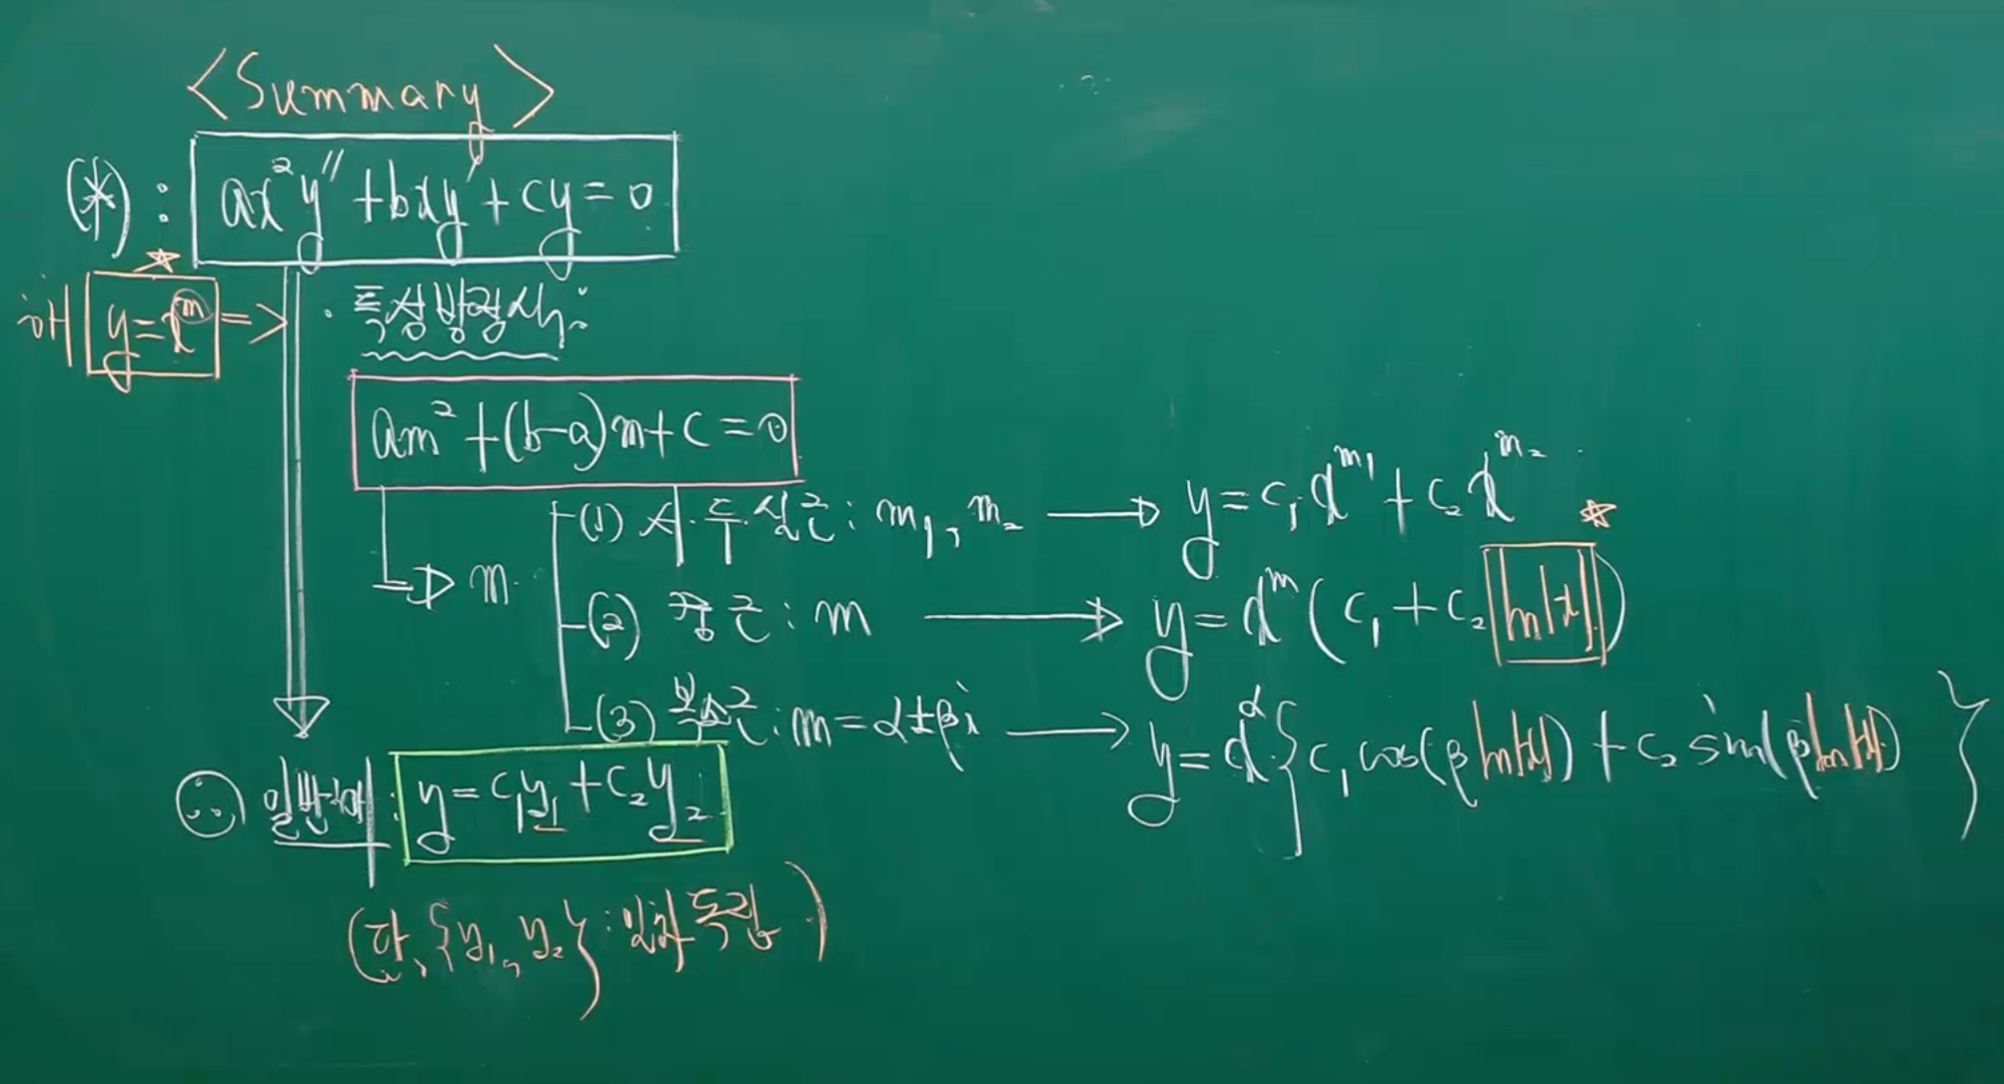 <Summary>
(*) : ax²y″ + bxy′ + cy = 0
해 y = x^m =>
· 특성방정식:
am² + (b-a)m + c = 0
⇒ m
(1) 서·두·실근 : m₁, m₂ → y = c₁x^m₁ + c₂x^m₂
(2) 중근 : m → y = x^m (c₁ + c₂ ln|x|)
(3) 복소근 : m = α±βi → y = x^α {c₁cos(β ln|x|) + c₂ sin(β ln|x|)}
∴ 일반해 : y = c₁y₁ + c₂y₂
(단, {y₁, y₂} : 일차독립)